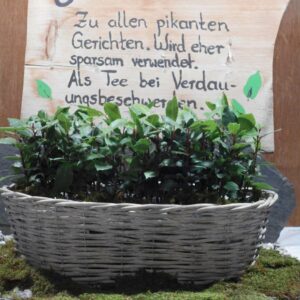 Zu allen pikanten
Gerichten. Wird eher
sparsam verwendet.
Als Tee bei Verdau-
ungsbeschwerden.